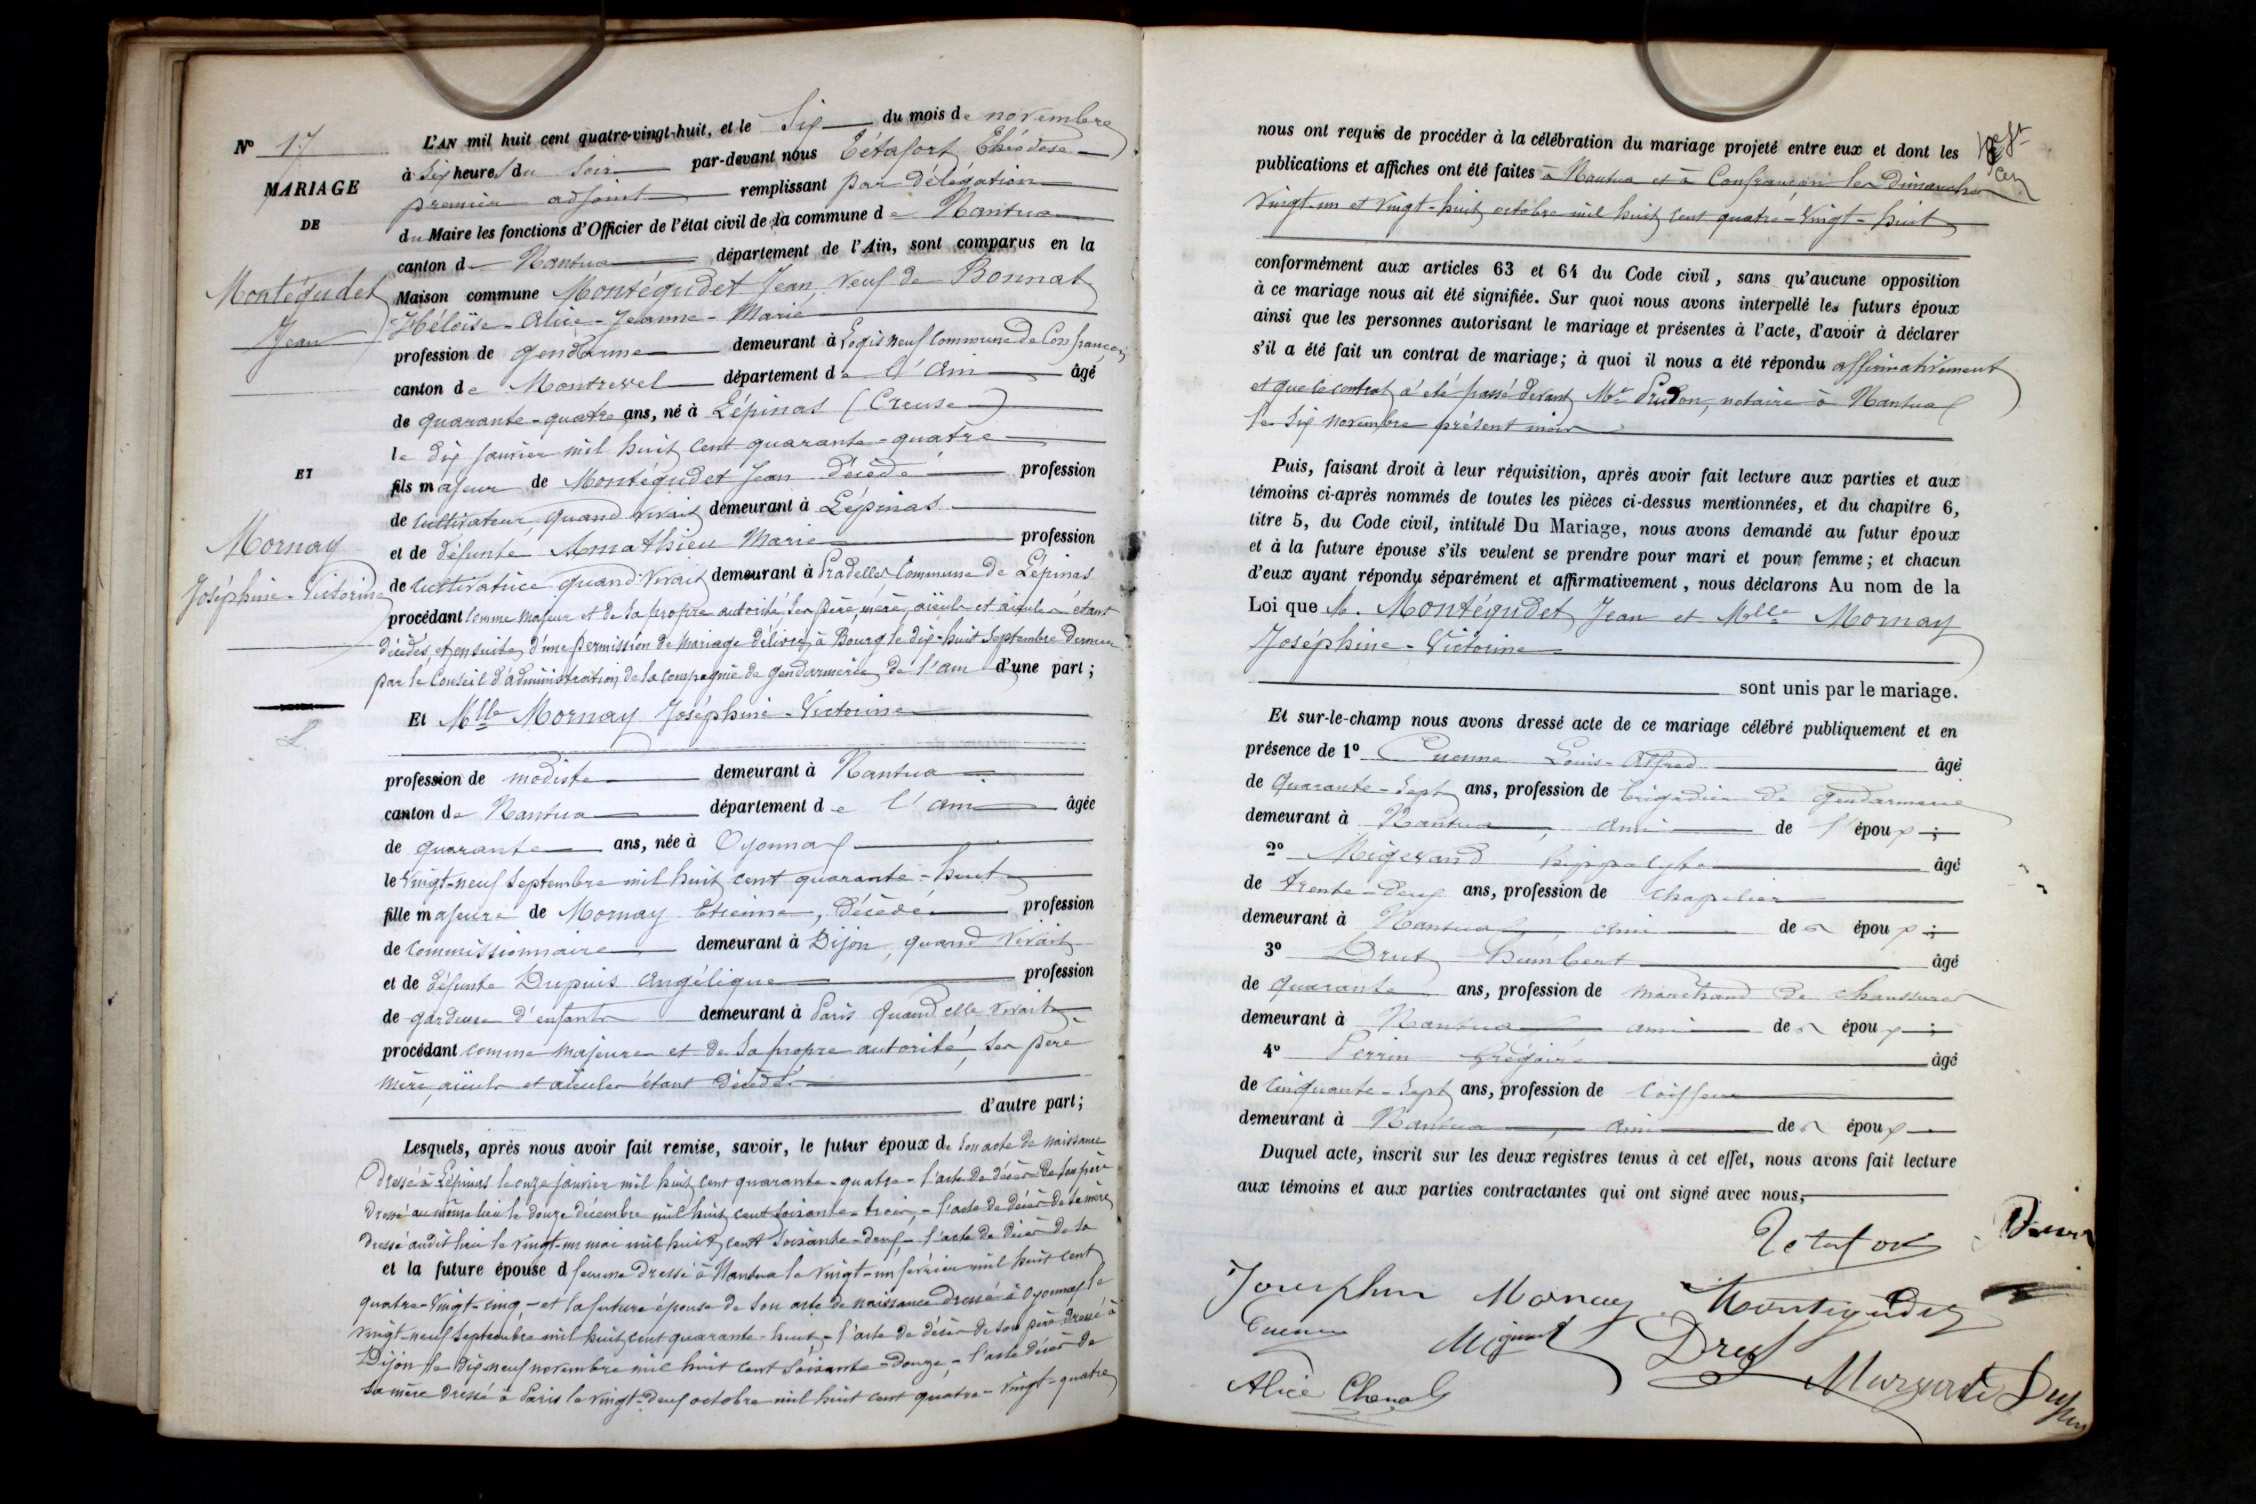 N° 17
MARIAGE
DE
Montégudet
Jean
ET
Mornay
Joséphine-Victorine
L'AN mil huit cent quatre-vingt-huit, et le Six du mois de novembre
à six heures du soir par-devant nous Tétafort Théodose
premier adjoint remplissant par délégation
du Maire les fonctions d'Officier de l'état civil de la commune de Nantua
canton de Nantua département de l'Ain, sont comparus en la
Maison commune Montégudet Jean veuf de Bonnat
Héloïse-Alice-Jeanne-Marie
profession de gendarme demeurant à Logis neuf Commune de Confrançon
canton de Montrevel département de l'Ain âgé
de quarante-quatre ans, né à Lépinas (Creuse)
le dix janvier mil huit cent quarante-quatre
fils majeur de Montégudet Jean décédé profession
de cultivateur quand vivait demeurant à Lépinas
et de défunte Amathieu Marie profession
de cultivatrice quand vivait demeurant à Pradelles Commune de Lépinas
procédant comme majeur et de sa propre autorité ses père, mère, aïeuls et aïeules étant
décédés, et ensuite d'une permission de mariage délivrée à Bourg le dix-huit Septembre dernier
par le Conseil d'administration de la compagnie de gendarmerie de l'ain d'une part;
Et Mlle Mornay Joséphine-Victorine
profession de modiste demeurant à Nantua
canton de Nantua département de l'Ain âgée
de quarante ans, née à Oyonnax
le vingt-neuf Septembre mil huit cent quarante-huit
fille majeure de Mornay Etienne, décédé profession
de commissionnaire demeurant à Dijon, quand vivait
et de défunte Dupuis Angélique profession
de gardeuse d'enfants demeurant à Paris quand elle vivait
procédant comme majeure et de sa propre autorité, ses père
mère, aïeuls et aïeules étant décédés
d'autre part;
Lesquels, après nous avoir fait remise, savoir, le futur époux de son acte de naissance
dressé à Lépinas le onze janvier mil huit cent quarante-quatre - l'acte de décès de son père
dressé au même lieu le douze décembre mil huit cent soixante-trois, - l'acte de décès de sa mère
dressé audit lieu le vingt-un mai mil huit cent soixante-deux - l'acte de décès de sa
et la future épouse d femme dressé à Nantua le vingt-un février mil huit cent
quatre-vingt-cinq, - et la future épouse de son acte de naissance dressé à Oyonnax le
vingt-neuf Septembre mil huit cent quarante-huit, - l'acte de décès de son père dressé à
Dijon le dix neuf novembre mil huit cent soixante-douze, - l'acte décès de
sa mère dressé à Paris le vingt-deux octobre mil huit cent quatre-vingt-quatre
nous ont requis de procéder à la célébration du mariage projeté entre eux et dont les
publications et affiches ont été faites à Nantua et à Confrançon les Dimanches
vingt-un et vingt-huit octobre mil huit cent quatre-vingt-huit
conformément aux articles 63 et 64 du Code civil, sans qu'aucune opposition
à ce mariage nous ait été signifiée. Sur quoi nous avons interpellé les futurs époux
ainsi que les personnes autorisant le mariage et présentes à l'acte, d'avoir à déclarer
s'il a été fait un contrat de mariage; à quoi il nous a été répondu affirmativement
et que le contrat a été passé devant Me Prudon, notaire à Nantua
le Six novembre présent mois
Puis, faisant droit à leur réquisition, après avoir fait lecture aux parties et aux
témoins ci-après nommés de toutes les pièces ci-dessus mentionnées, et du chapitre 6,
titre 5, du Code civil, intitulé Du Mariage, nous avons demandé au futur époux
et à la future épouse s'ils veulent se prendre pour mari et pour femme; et chacun
d'eux ayant répondu séparément et affirmativement, nous déclarons Au nom de la
Loi que M. Montégudet Jean et Mlle Mornay
Joséphine-Victorine
sont unis par le mariage.
Et sur-le-champ nous avons dressé acte de ce mariage célébré publiquement et en
présence de 1° Cuenne Louis-Alfred âgé
de quarante-sept ans, profession de brigadier de gendarmerie
demeurant à Nantua, ami de l'époux;
2° Migerand hippolyte âgé
de trente-deux ans, profession de chapelier
demeurant à Nantua, ami des époux;
3° Drut humbert âgé
de quarante ans, profession de marchand de chaussures
demeurant à Nantua ami des époux;
4° Perrin Grégoire âgé
de cinquante-sept ans, profession de coiffeur
demeurant à Nantua, ami des époux
Duquel acte, inscrit sur les deux registres tenus à cet effet, nous avons fait lecture
aux témoins et aux parties contractantes qui ont signé avec nous,
Tetafort
Josephin Mornay Montégudet
Cuenne Migerand Drut
Alice Chenal Marguerite Dupuis